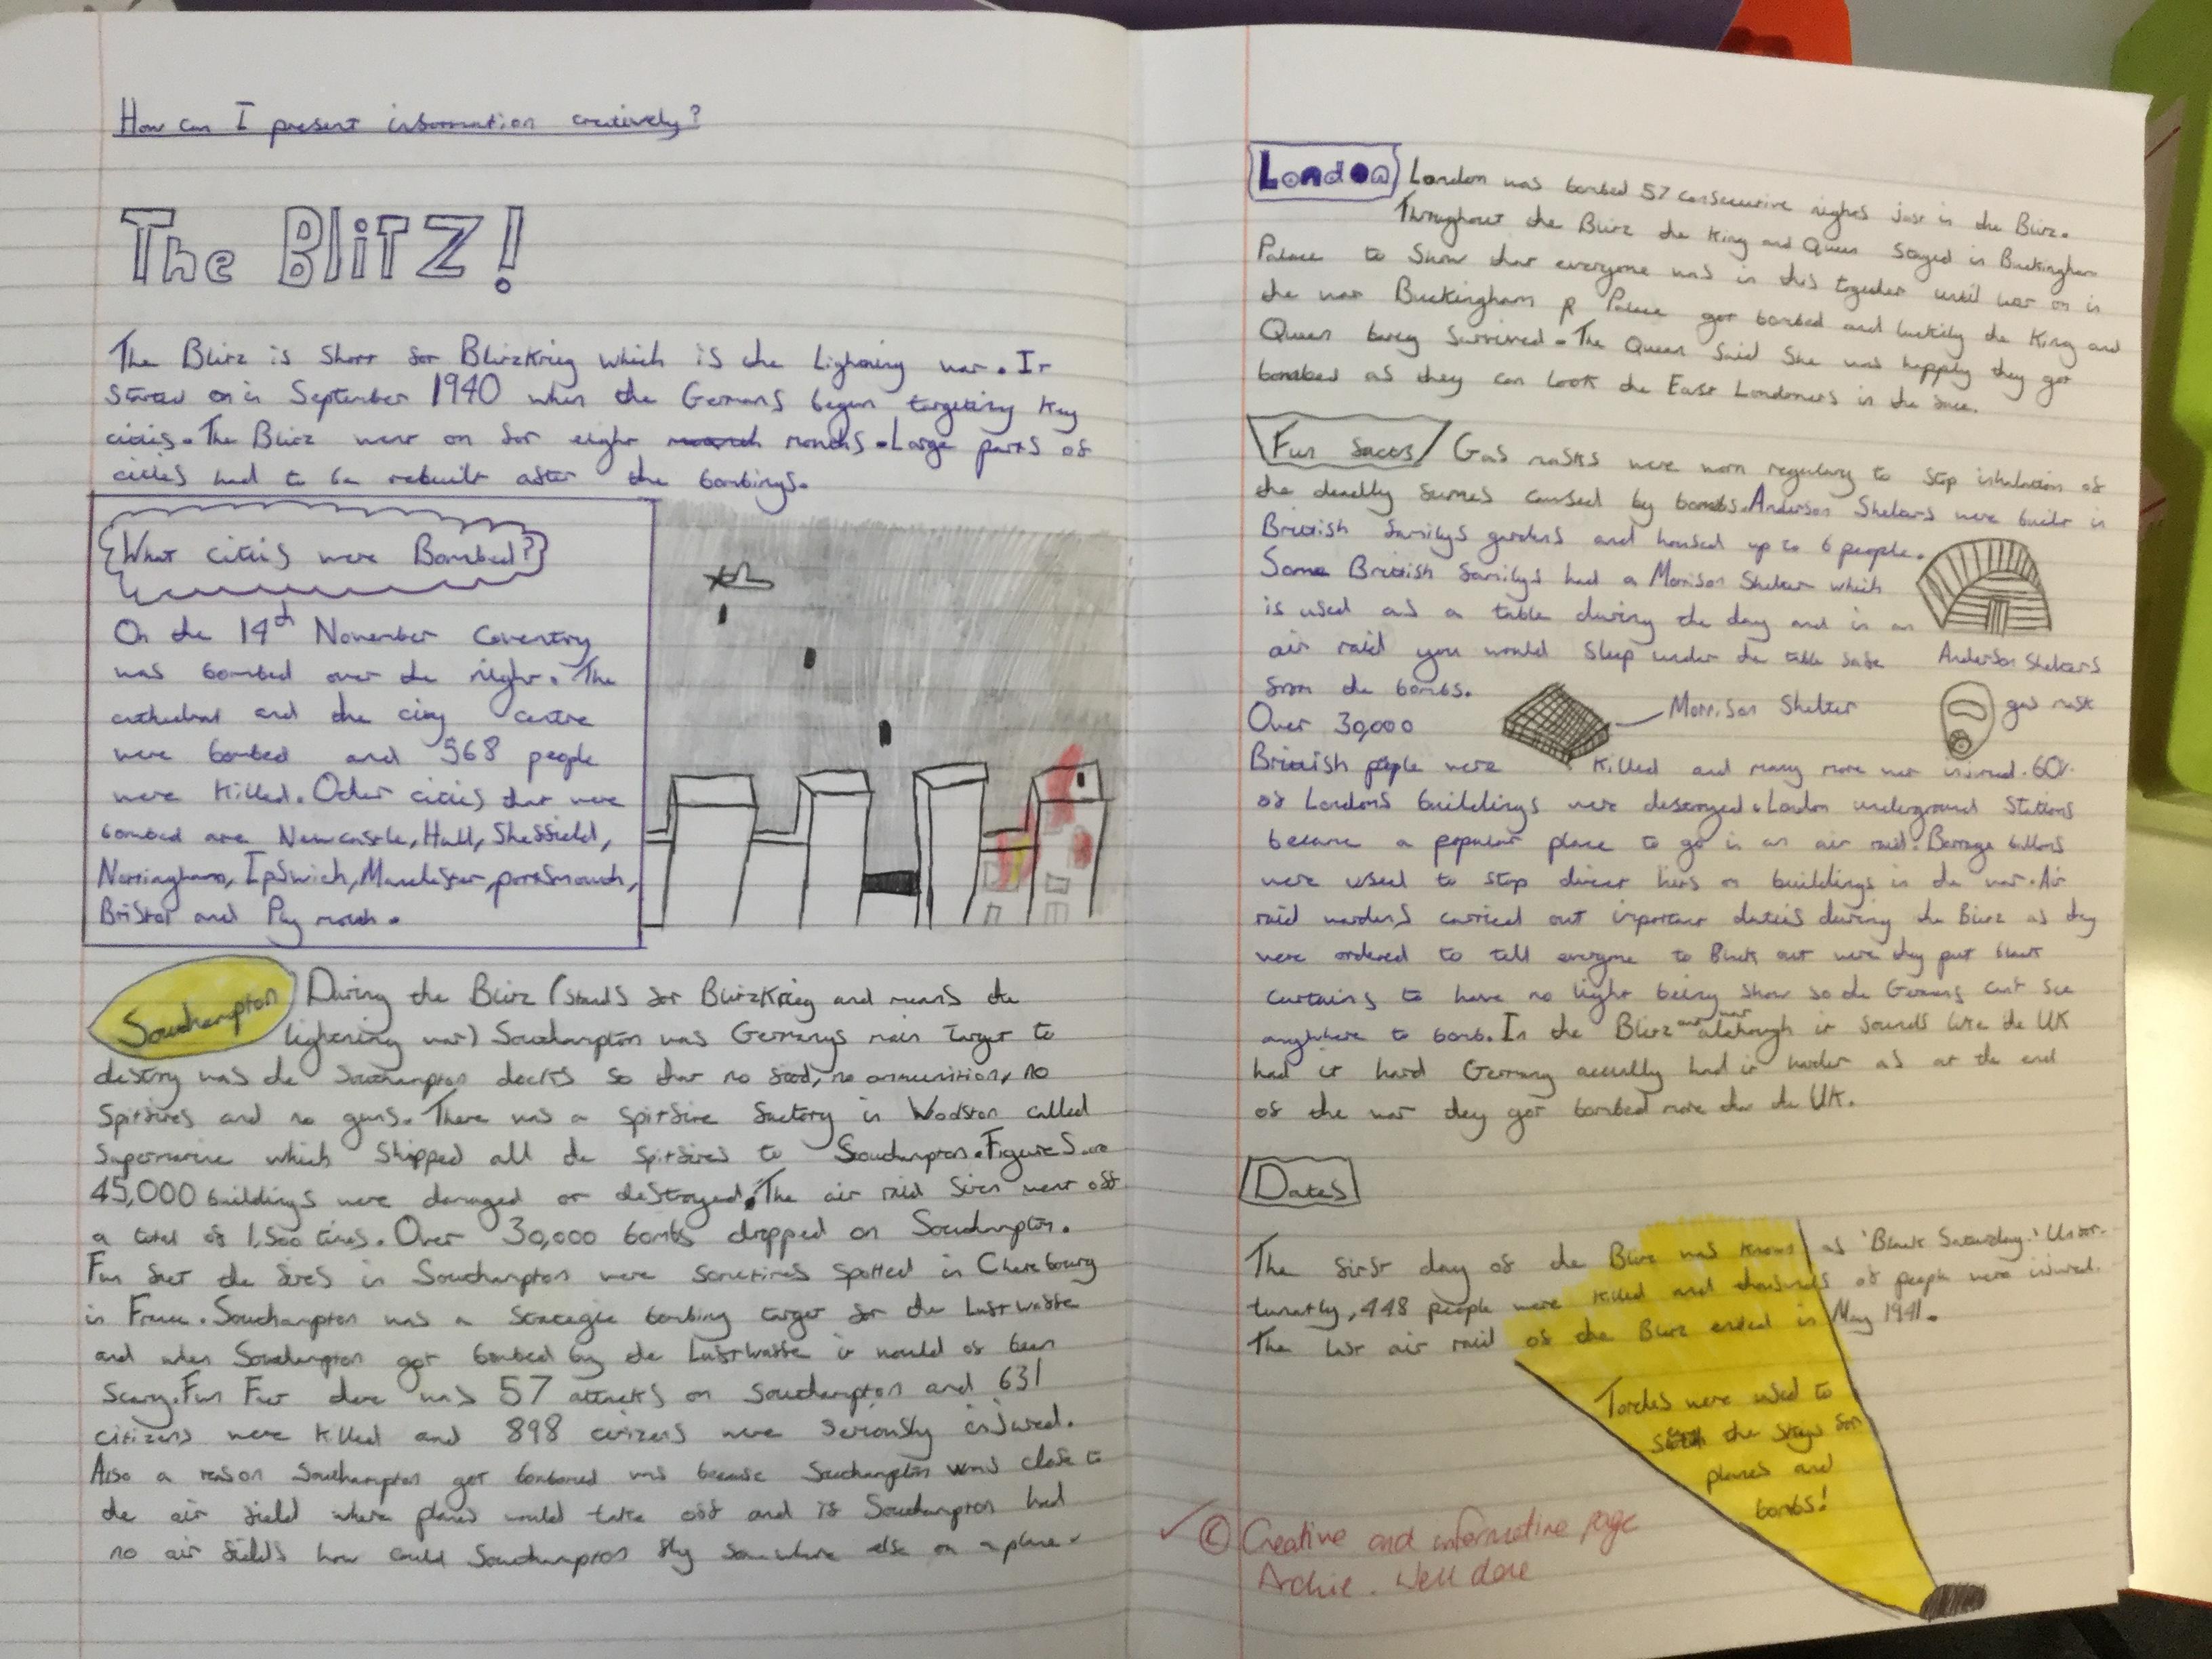 How can I present information creatively?
The BLiTZ!
The Blitz is short for Blitzkrieg which is the lightning war. It
started on in September 1940 when the Germans began targeting key
cities. The Blitz went on for eight months. Large parts of
cities had to be rebuilt after the bombings.
What cities were Bombed?
On the 14th November Coventry
was bombed over the night. The
cathedral and the city centre
were bombed and 568 people
were killed. Other cities that were
bombed are Newcastle, Hull, Sheffield,
Nottingham, Ipswich, Manchester, portsmouth,
Bristol and Plymouth.
Southampton
During the Blitz (stands for Blitzkrieg and means the
lightening war) Southampton was Germanys main target to
destroy was the Southampton docks so that no food, no ammunition, no
spitfires and no guns. There was a spitfire factory in Woolston called
Supermarine which shipped all the spitfires to Southampton. Figures are
45,000 buildings were damaged or destroyed. The air raid siren went off
a total of 1,500 times. Over 30,000 bombs dropped on Southampton.
Fun fact the fires in Southampton were sometimes spotted in Cherebourg
in France. Southampton was a strategic bombing target for the Luftwaffe
and when Southampton got bombed by the Luftwaffe it would of been
scary. Fun Fact there was 57 attacks on Southampton and 631
citizens were killed and 898 citizens were seriously injured.
Also a reason Southampton got bombed was because Southampton was close to
the air field where planes would take off and if Southampton had
no air fields how could Southampton fly somewhere else on a plane.
London
London was bombed 57 consecutive nights just in the Blitz.
Throughout the Blitz the King and Queen stayed in Buckingham
Palace to show that everyone was in this together until later on in
the war Buckingham P Palace got bombed and luckily the King and
Queen barey survived. The Queen said she was happly they got
bombed as they can look the East Londoners in the face.
Fun facts
Gas masks were worn regulary to stop inhalation of
the deadly fumes caused by bombs. Anderson Shelters were built in
British familys gardens and housed up to 6 people.
Some British familys had a Morrison Shelter which
is used as a table during the day and in an
air raid you would sleep under the table safe
from the bombs.
Anderson Shelters
Morrison Shelter
gas mask
Over 30,000
British people were killed and many more were injured. 60%
of Londons buildings were destroyed. London underground stations
became a popular place to go in an air raid. Barrage
were used to stop direct hits on buildings in the war. Air
raid wardens carried out important duties during the Blitz as they
were ordered to tell everyone to Black out were they put black
curtains to have no light being show so the Germans cant see
anywhere to bomb. In the Blitz although it sounds like the UK
had it hard Germany actually had it harder as at the end
of the war they got bombed more than the UK.
Dates
The first day of the Blitz was known as 'Black Saturday.' Unfor-
tunatly, 448 people were killed and thousands of people were injured.
The last air raid of the Blitz ended in May 1941.
Torches were used to
the skys for
planes and
bombs!
✓ © Creative and informative page
Archie. Well done